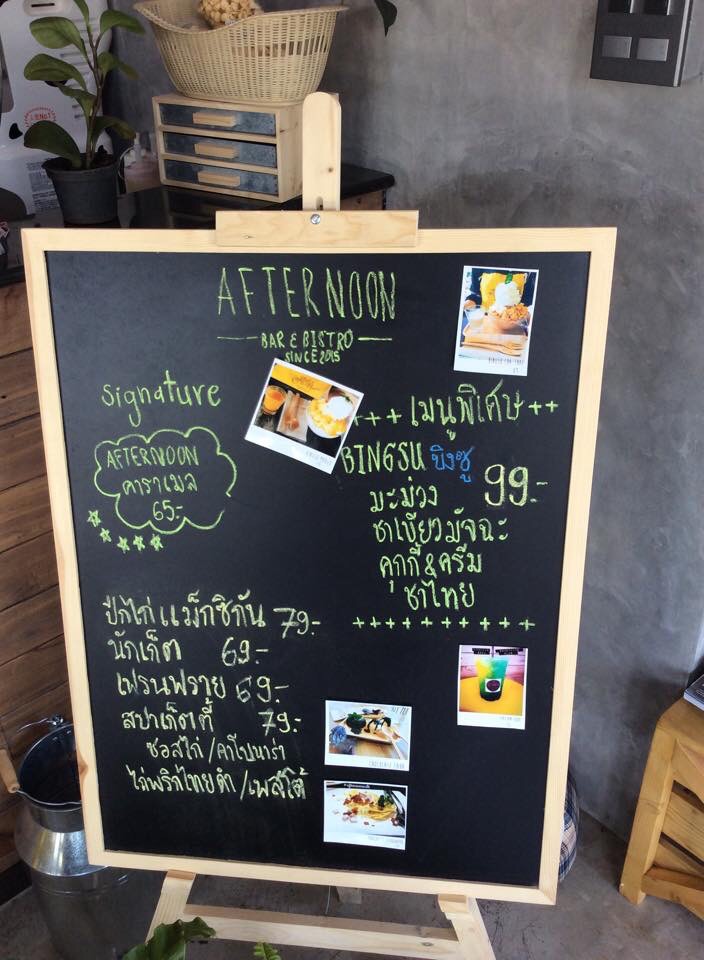 AFTERNOON
BAR & BISTRO
SINCE 2015
Signature
AFTERNOON
คาราเมล
65.-
+++ เมนูพิเศษ ++
BINGSU บิงซู 99.-
มะม่วง
ชาเขียวมัจฉะ
คุกกี้&ครีม
ชาไทย
++++++++++
ปีกไก่แม็กซิกัน 79.-
นักเก็ต 69.-
เฟรนฟราย 69.-
สปาเก็ตตี้ 79.-
ซอสไก่/คาโบนารา
ไก่พริกไทยดำ/เพสโต้